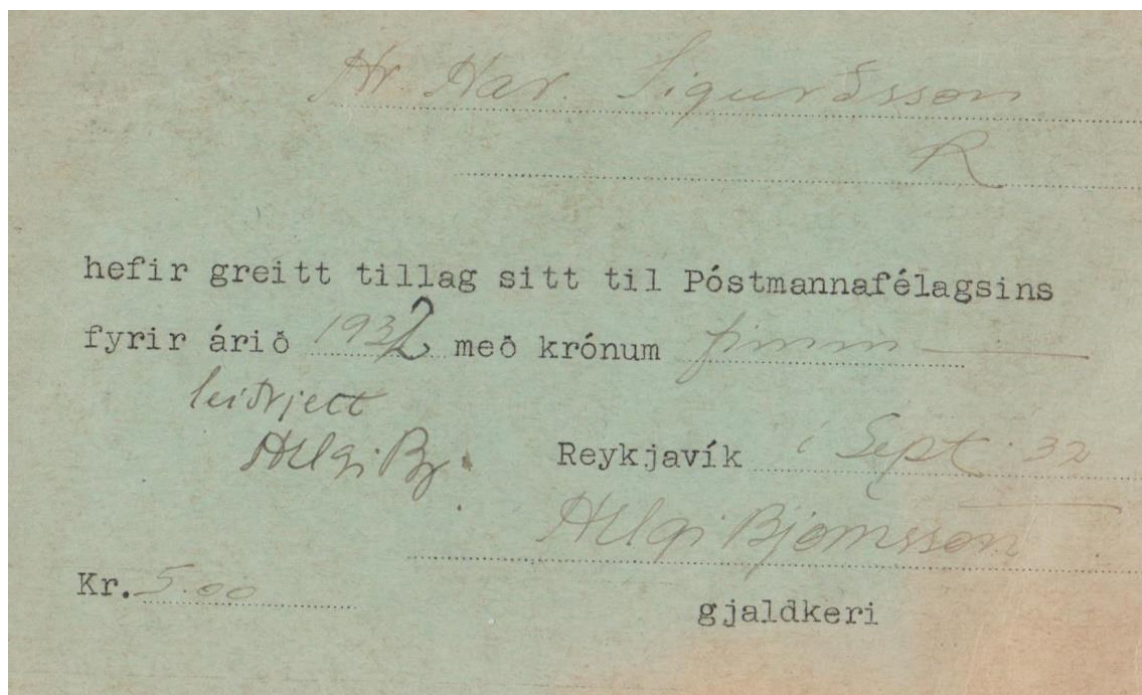 Hr. Har. Sigurðsson
R
hefir greitt tillag sitt til Póstmannafélagsins
fyrir árið 1932 með krónum fimm
leiðrjett
Helgi Bj.
Reykjavík í Sept. 32
Helgi Björnsson
Kr. 5.00
gjaldkeri